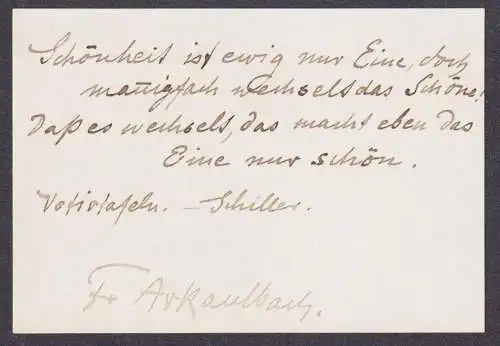 Schönheit ist ewig nur Eine, doch
mañigfach wechselt das Schöne!
Daß es wechselt, das macht eben das
Eine nur schön.
Votivtafeln. – Schiller.
Fr Aug Kaulbach.